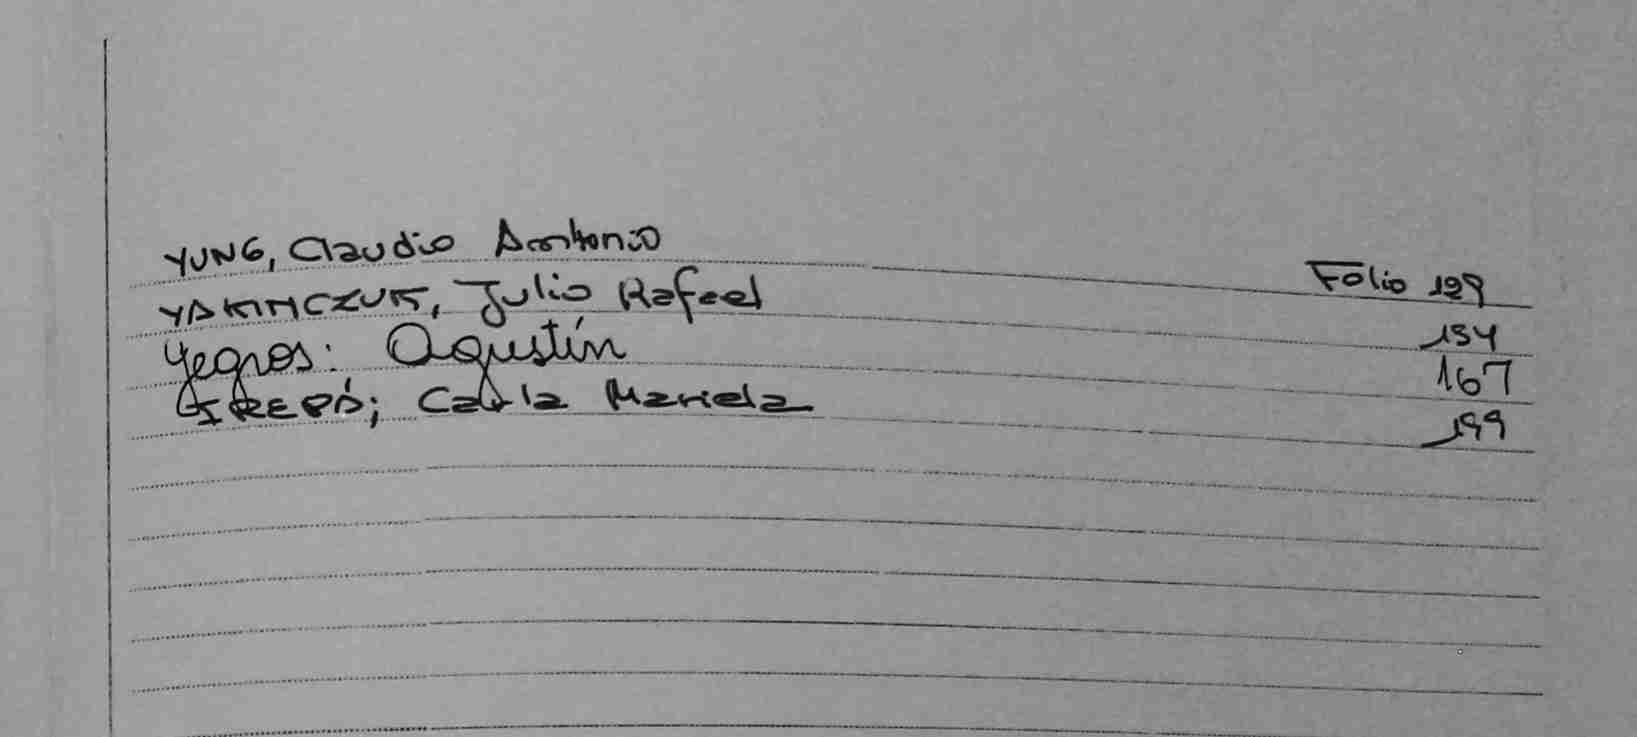 YUNG, Claudio Antonio Folio 129
YAKIMCZUK, Julio Rafael 154
Yegros: Agustín 167
Carla Mariela 199